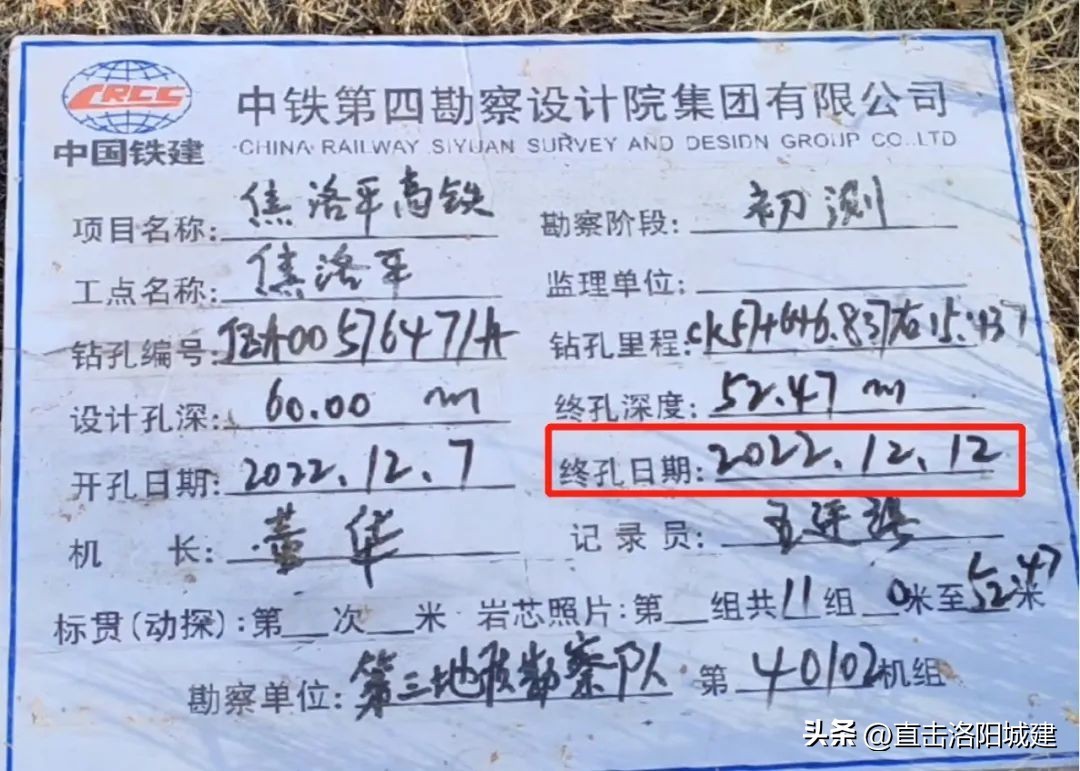 CRCC
中国铁建
中铁第四勘察设计院集团有限公司
CHINA RAILWAY SIYUAN SURVEY AND DESIGN GROUP CO.,LTD
项目名称: 焦洛平高铁 勘察阶段: 初测
工点名称: 焦洛平 监理单位:
钻孔编号: 00576471A 钻孔里程: CK57+646.837右15.437
设计孔深: 60.00 m 终孔深度: 52.47 m
开孔日期: 2022.12.7 终孔日期: 2022.12.12
机 长: 董华 记录员: 王
标贯(动探): 第 次 米 岩芯照片: 第 组共11组 0米至52.47米
勘察单位: 第三地质勘察队 第40102机组
头条 @直击洛阳城建